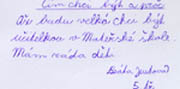 Čím chci být a proč
Až budu velká chci být
učitelkou v Mateřské škole
Mám ráda děti
Beáta
5. tř.